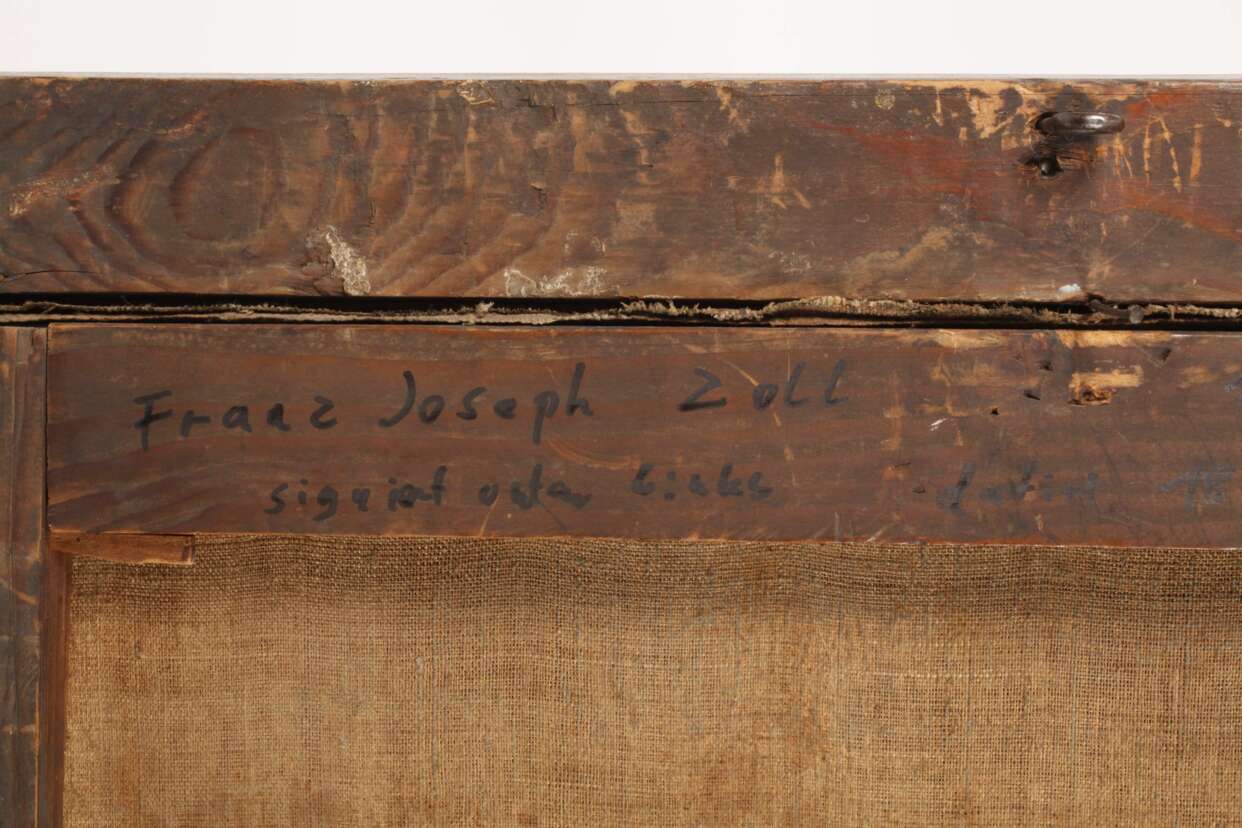 Franz Joseph Zoll
signiert unten links datiert 18